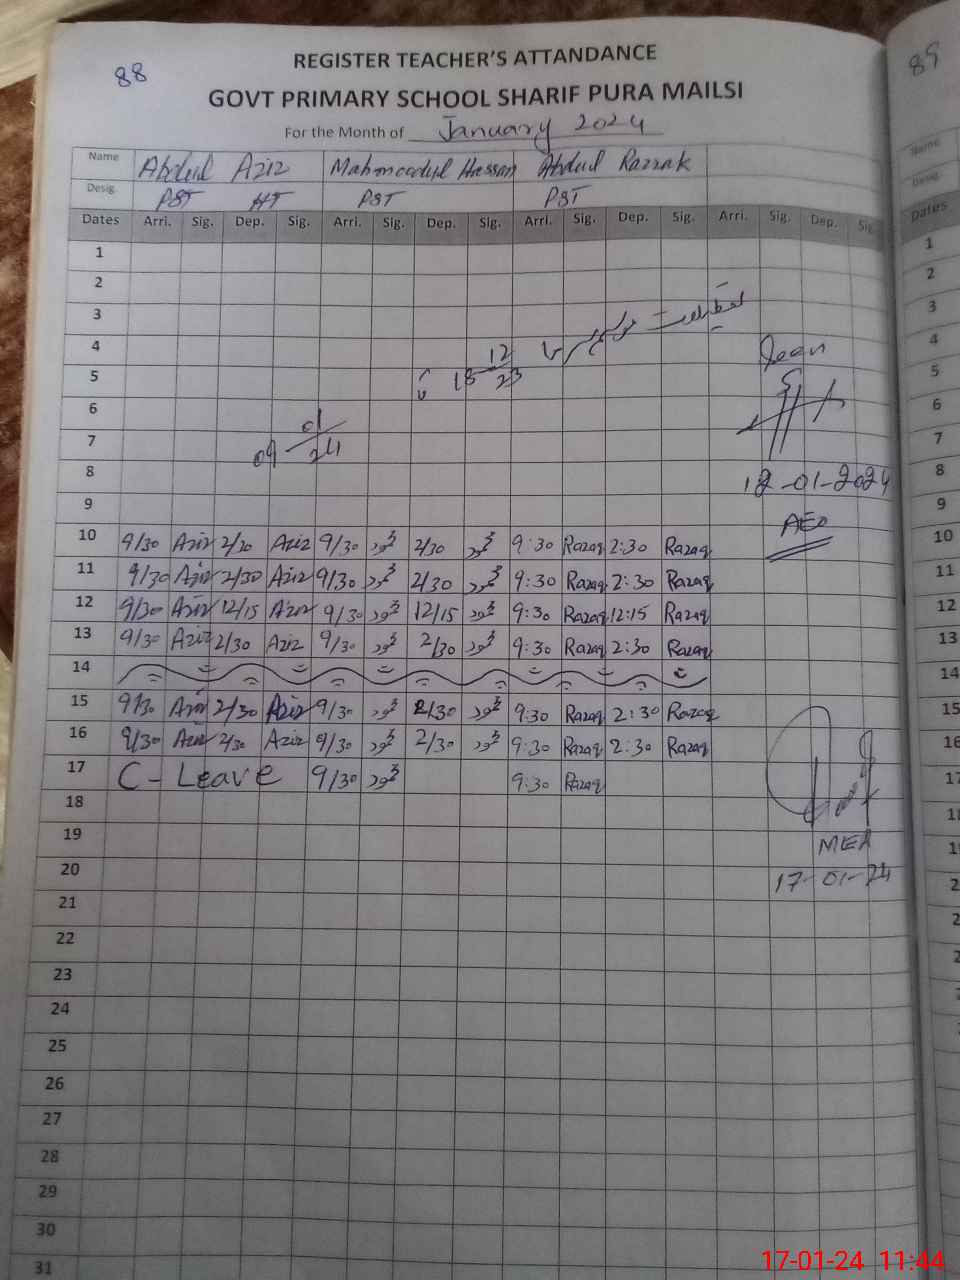 88
89
REGISTER TEACHER'S ATTANDANCE
GOVT PRIMARY SCHOOL SHARIF PURA MAILSI
For the Month of January 2024
Name Abdul Aziz Mahmoodul Hassan Abdul Razzak
Desig. PST HT PST PST
Dates Arri. Sig. Dep. Sig. Arri. Sig. Dep. Sig. Arri. Sig. Dep. Sig. Arri. Sig. Dep. Sig.
1
2
3
4
5
6
7
8
9
18 12/23
09 01/24
Seen
12-01-2024
AEO
10 9/30 Aziz 2/30 Aziz 9/30 2/30 9:30 Razaq 2:30 Razaq
11 9/30 Aziz 2/30 Aziz 9/30 2/30 9:30 Razaq 2:30 Razaq
12 9/30 Aziz 12/15 Aziz 9/30 12/15 9:30 Razaq 12:15 Razaq
13 9/30 Aziz 2/30 Aziz 9/30 2/30 9:30 Razaq 2:30 Razaq
14
15 9/30 Aziz 2/30 Aziz 9/30 2/30 9:30 Razaq 2:30 Razaq
16 9/30 Aziz 2/30 Aziz 9/30 2/30 9:30 Razaq 2:30 Razaq
17 C-Leave 9/30 9:30 Razaq
18
19
20
MEA
17-01-24
21
22
23
24
25
26
27
28
29
30
31
Name
Desig.
Dates
1
2
3
4
5
6
7
8
9
10
11
12
13
14
15
16
17-01-24 11:44